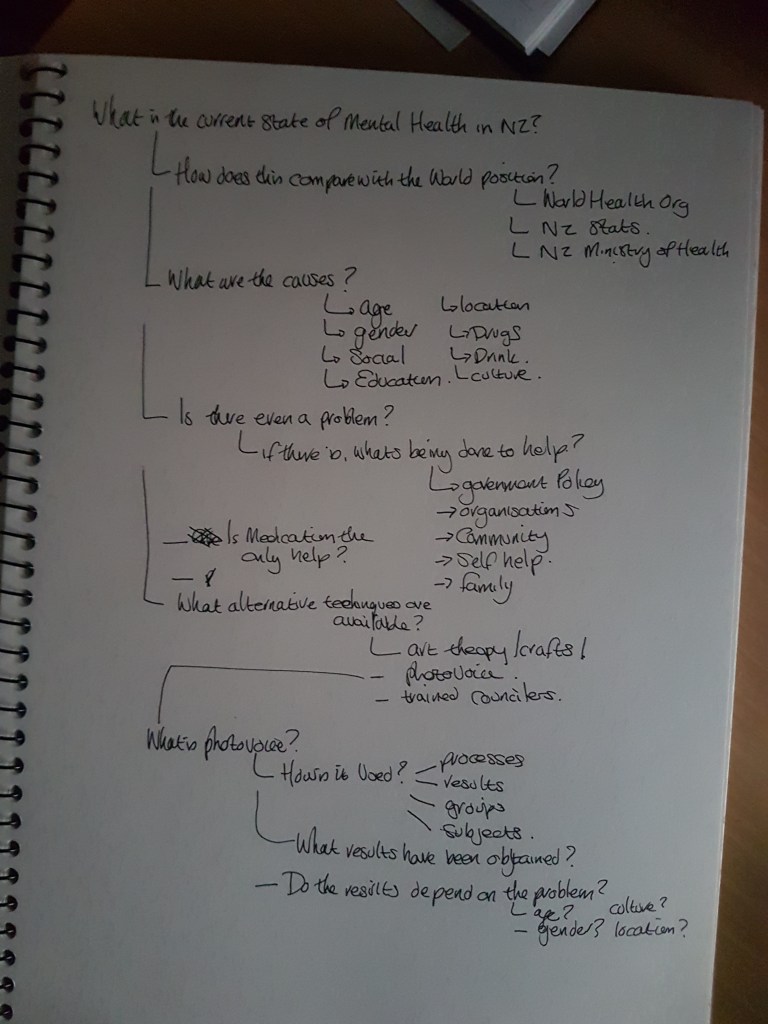 What is the current state of Mental Health in NZ?
How does this compare with the World position?
World Health Org
NZ Stats.
NZ Ministry of Health
What are the causes?
age
gender
Social
Education.
location
Drugs
Drink.
culture.
Is there even a problem?
if there is, whats being done to help?
goverment Policy
organisations
Community
Self help.
family
Is Medication the
only help?
What alternative techniques are
available?
art theapy /crafts/
photovoice.
trained councilers.
What is photovoice?
How is it Used?
processes
results
groups
Subjects.
What results have been obtained?
Do the results depend on the problem?
age?
culture?
gender?
location?